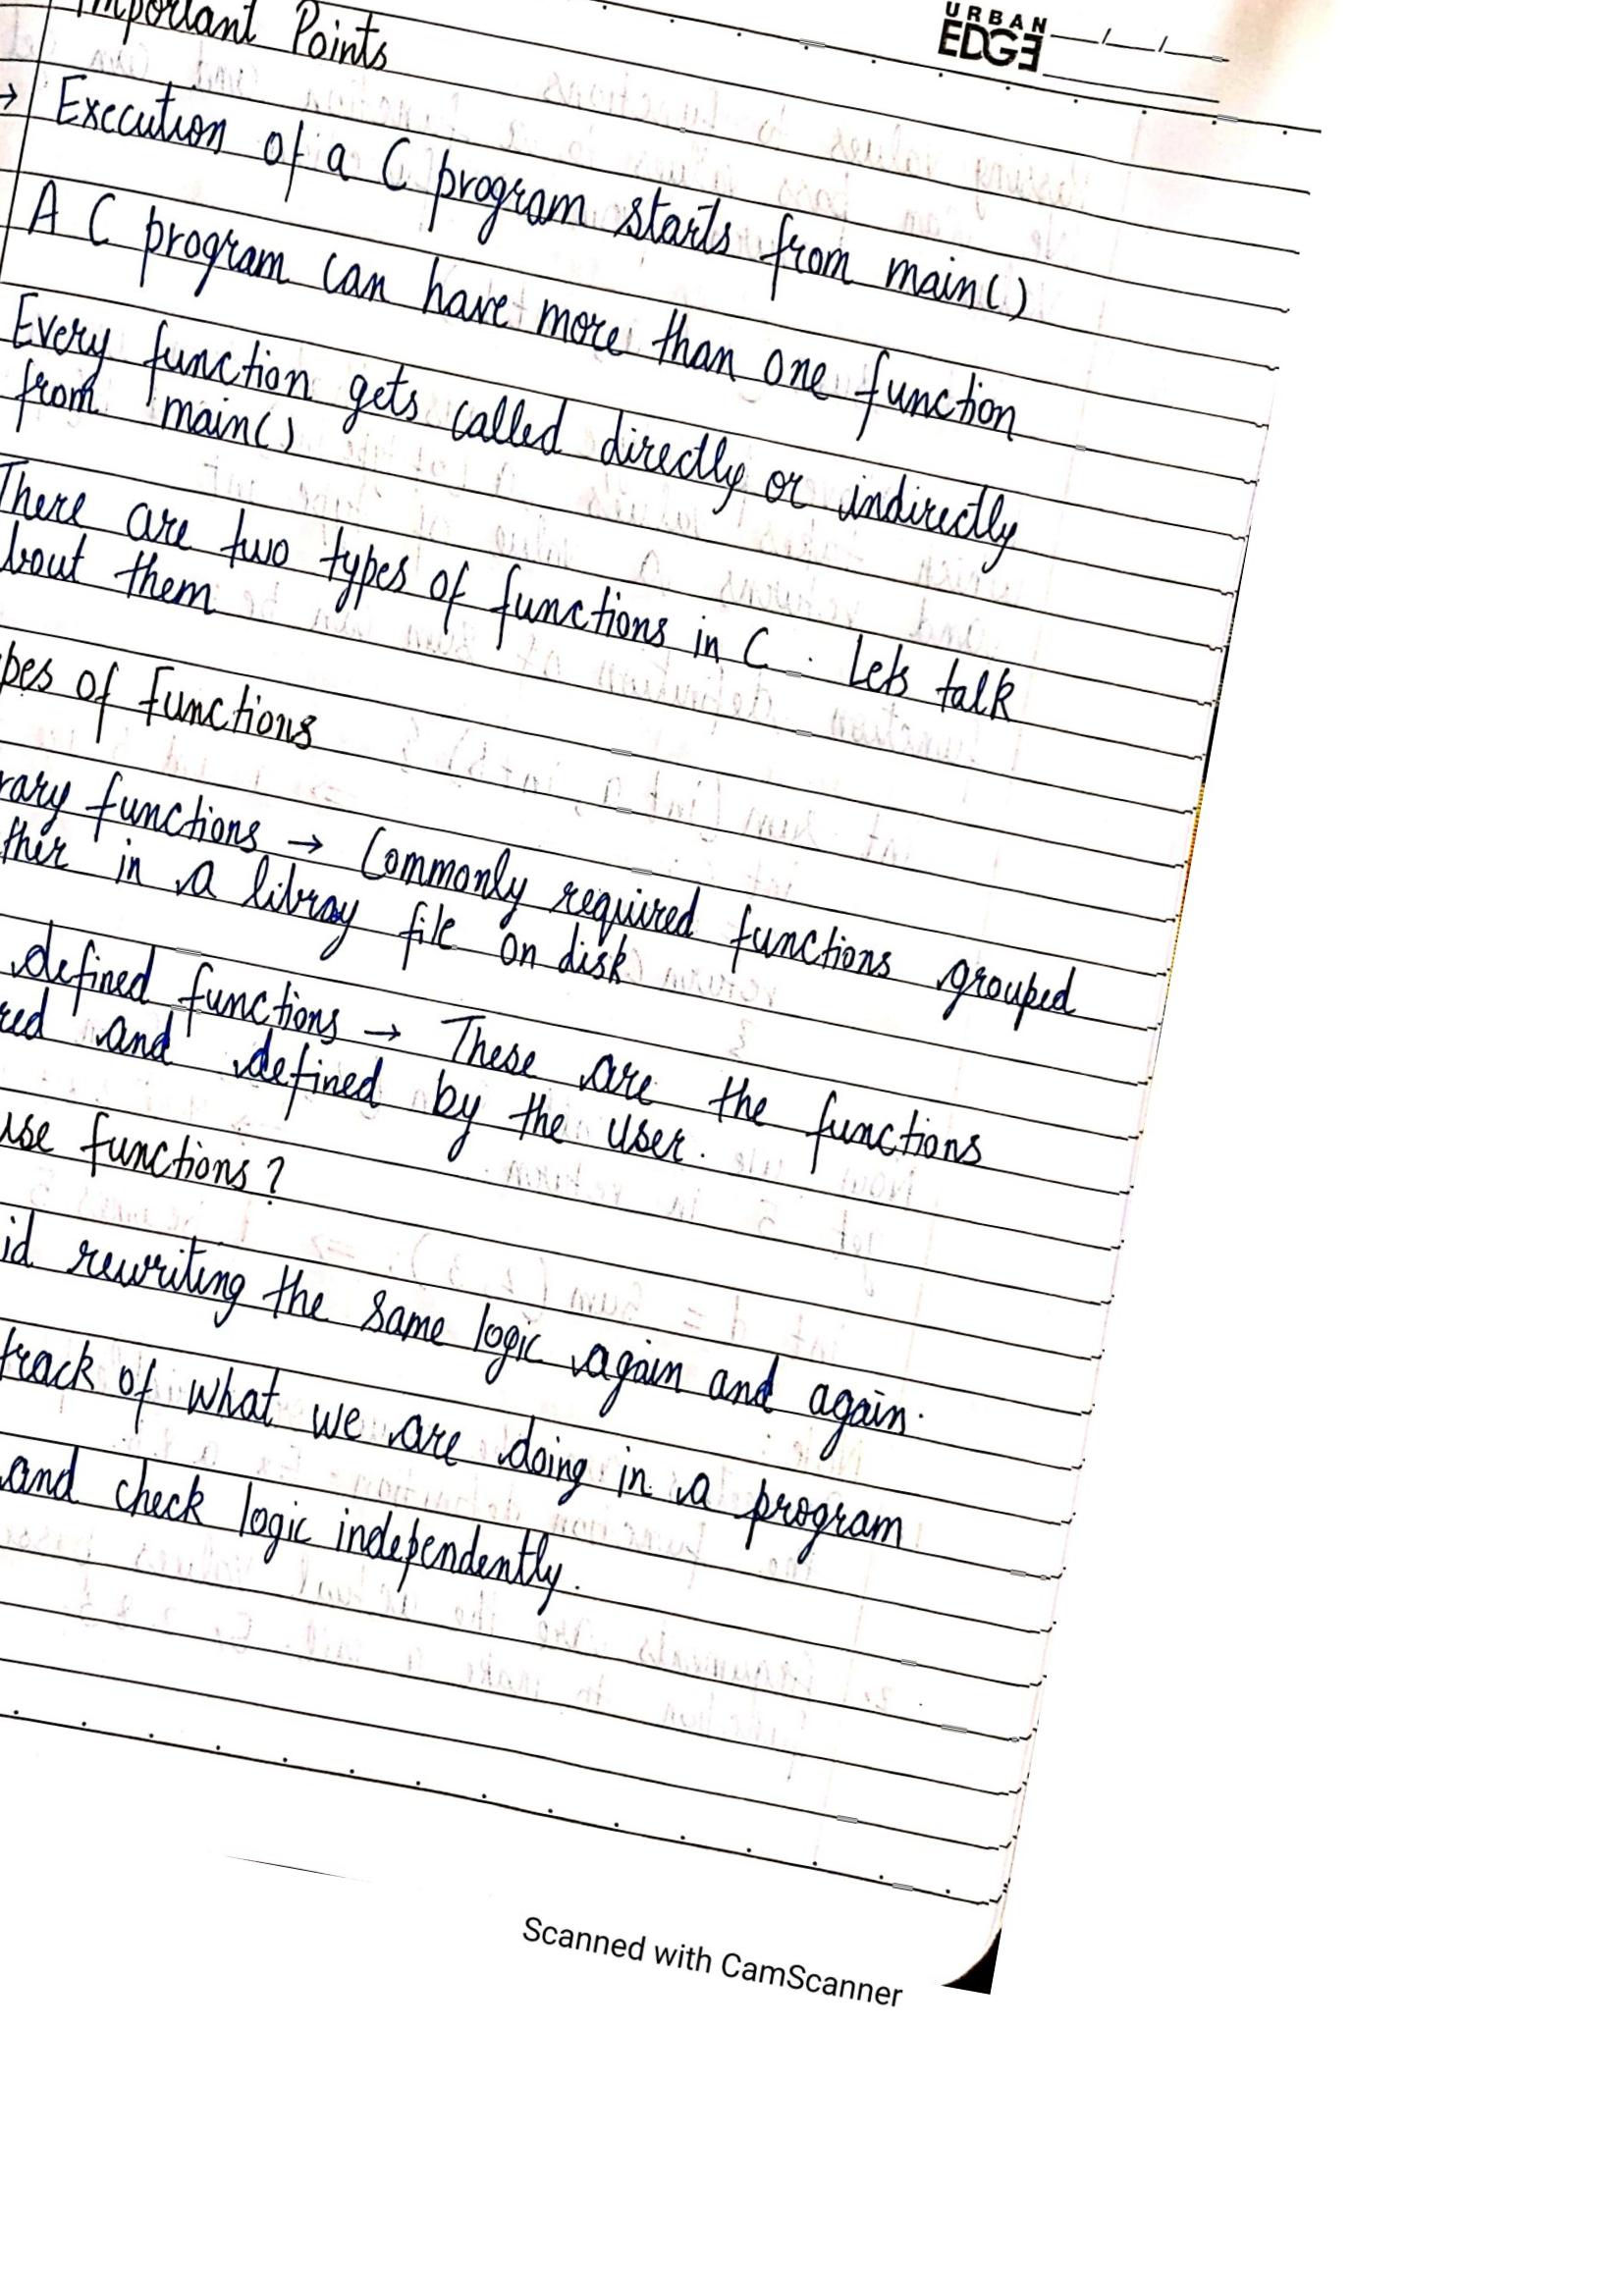 Important Points
URBAN
EDGE
→ Execution of a C program starts from main()
A C program can have more than one function
Every function gets called directly or indirectly
from main()
There are two types of functions in C. Lets talk
bout them
pes of functions
rary functions → Commonly required functions grouped
ther in a libray file on disk
defined functions → These are the functions
red and defined by the user.
use functions?
id rewriting the same logic again and again.
track of what we are doing in a program
and check logic independently.
Scanned with CamScanner